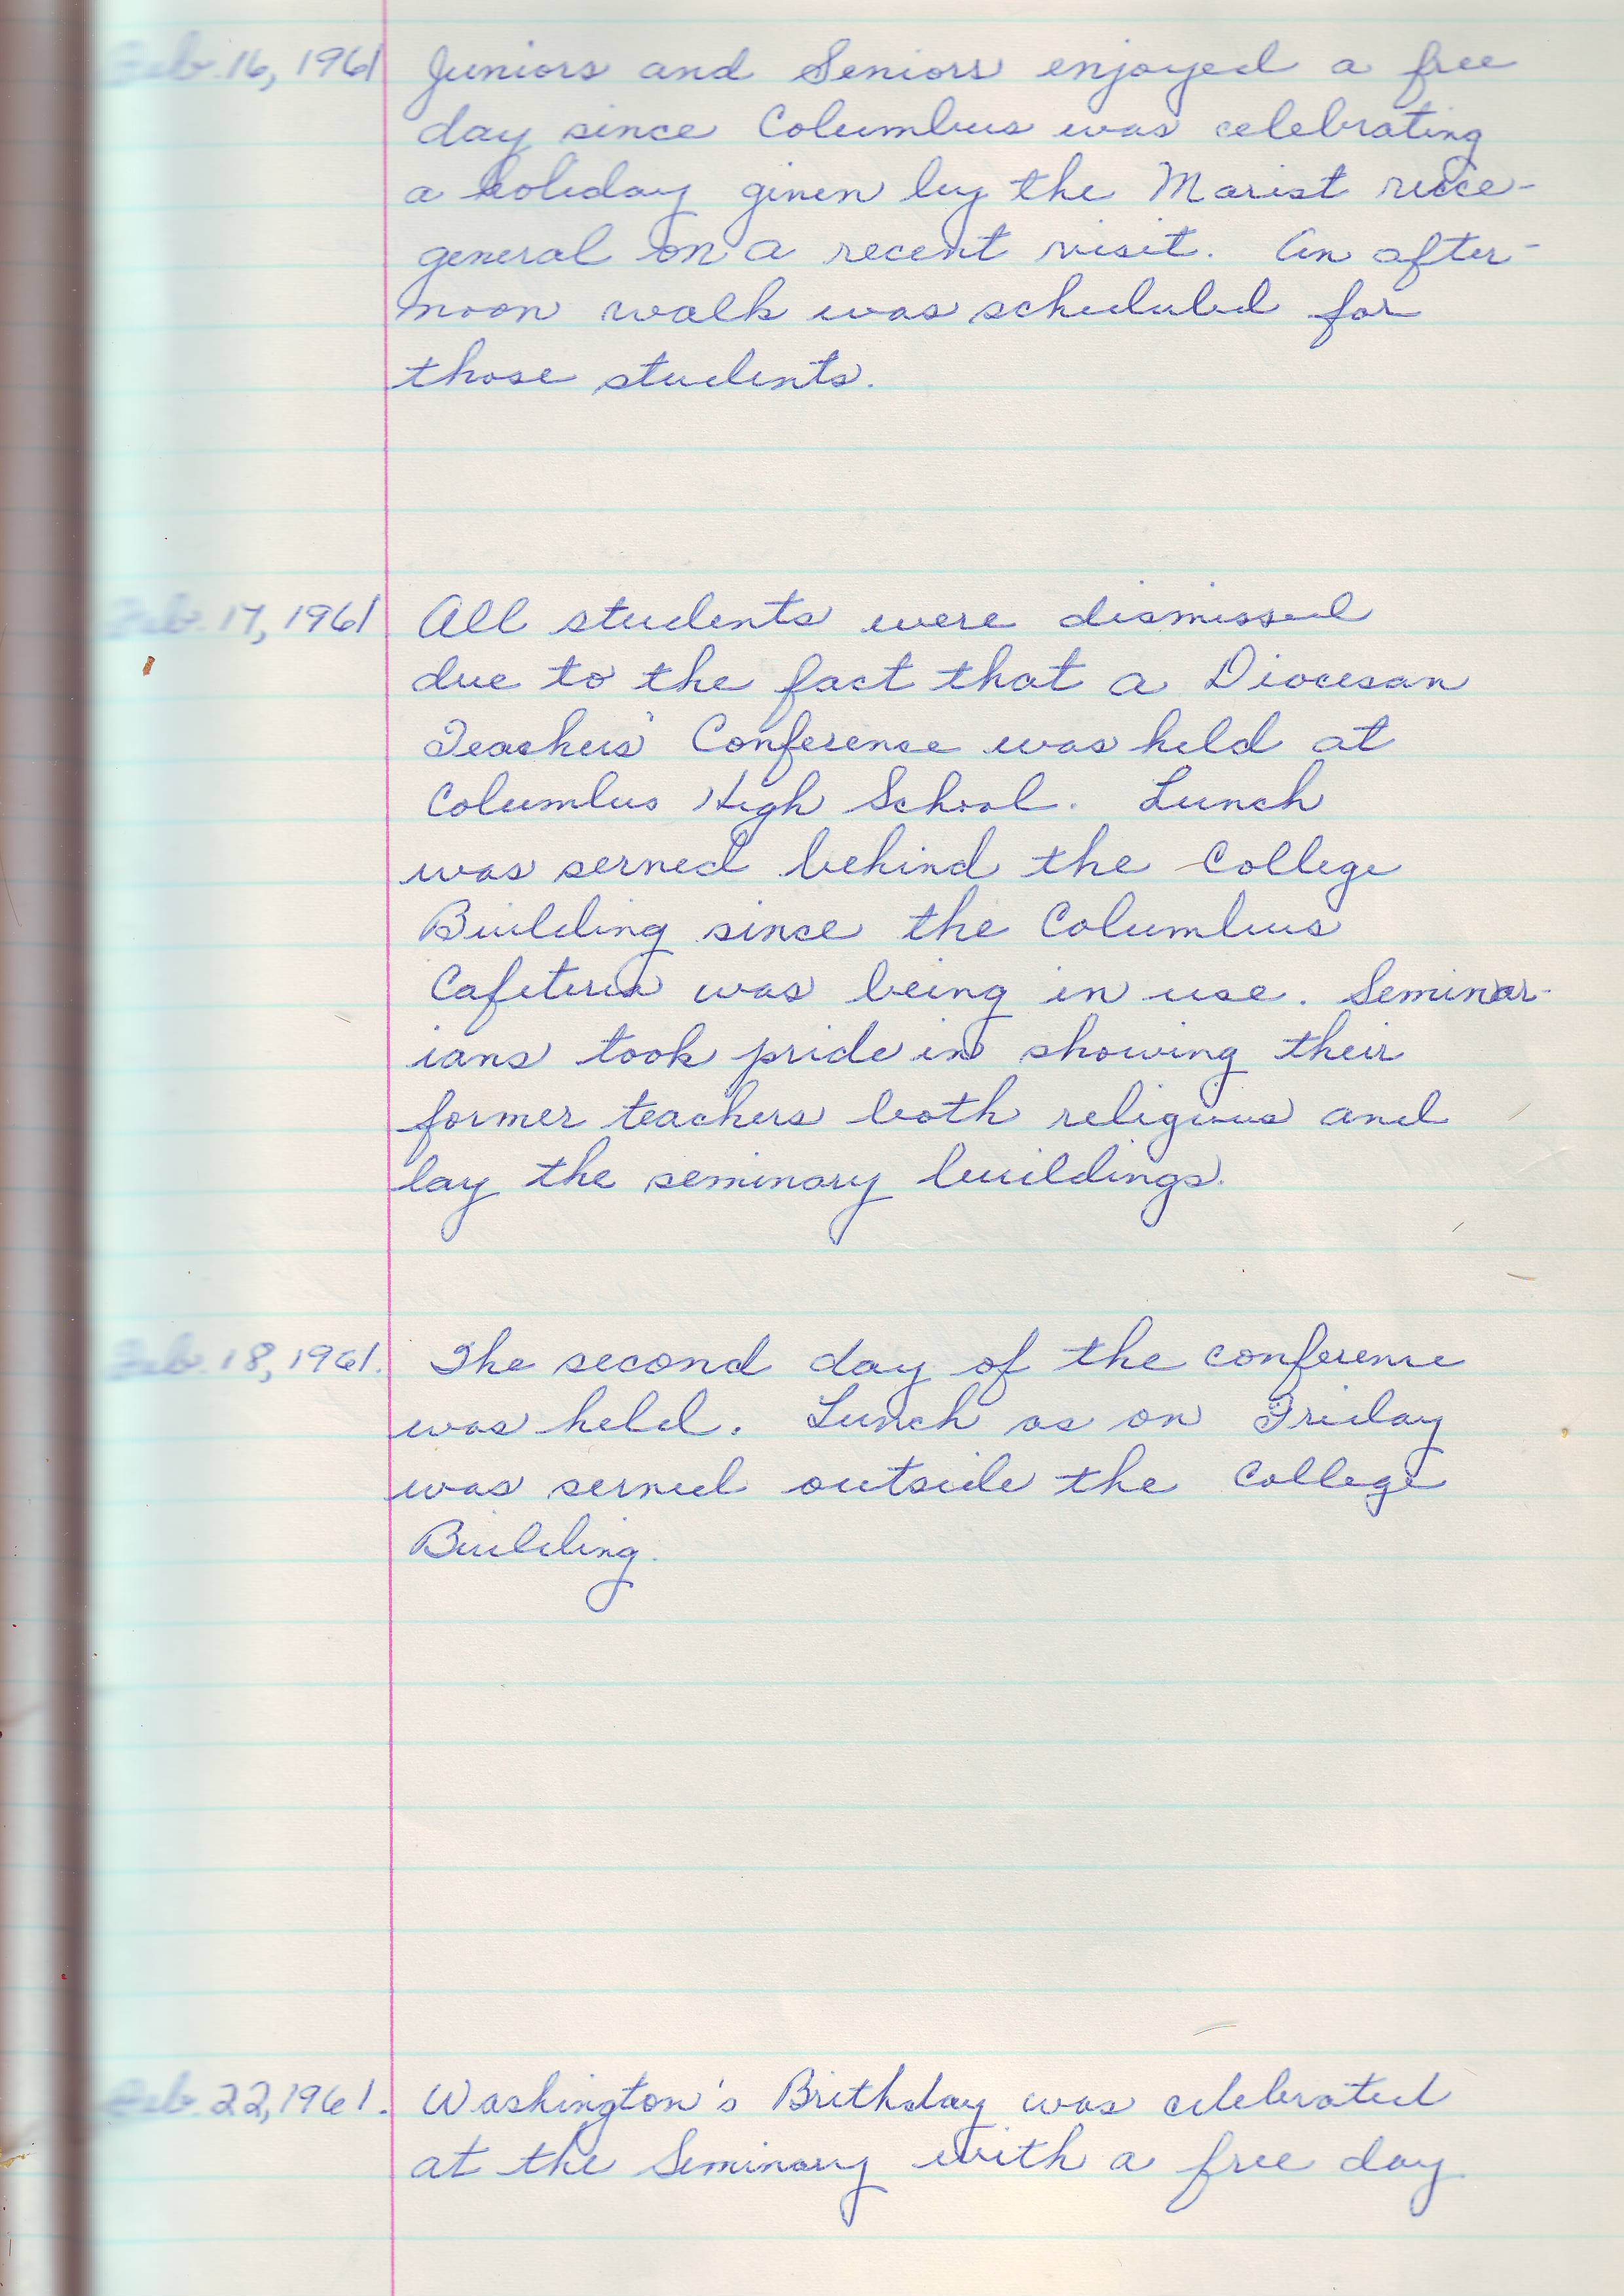 Feb. 16, 1961 Juniors and Seniors enjoyed a free
day since Columbus was celebrating
a holiday given by the Marist vice-
general on a recent visit. An after-
noon walk was scheduled for
those students.
Feb. 17, 1961 All students were dismissed
due to the fact that a Diocesan
Teachers' Conference was held at
Columbus High School. Lunch
was served behind the College
Building since the Columbus
Cafeteria was being in use. Seminar-
ians took pride in showing their
former teachers both religious and
lay the seminary buildings.
Feb. 18, 1961. The second day of the conference
was held. Lunch as on Friday
was served outside the College
Building.
Feb. 22, 1961. Washington's Brithday was celebrated
at the Seminary with a free day